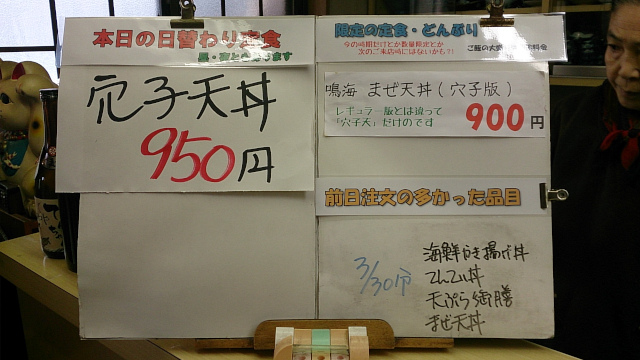 本日の日替わり定食
昼・夜とあります
穴子天丼
950円
限定の定食・どんぶり
今の時期だけとか数量限定とか
次のご来店時にはないかも?!
ご飯の大盛
料金
鳴海 まぜ天丼(穴子版)
レギュラー版とは違って
「穴子天」だけのです
900円
前日注文の多かった品目
3/30分
海鮮かき揚げ丼
てんてん丼
天ぷら御膳
まぜ天丼